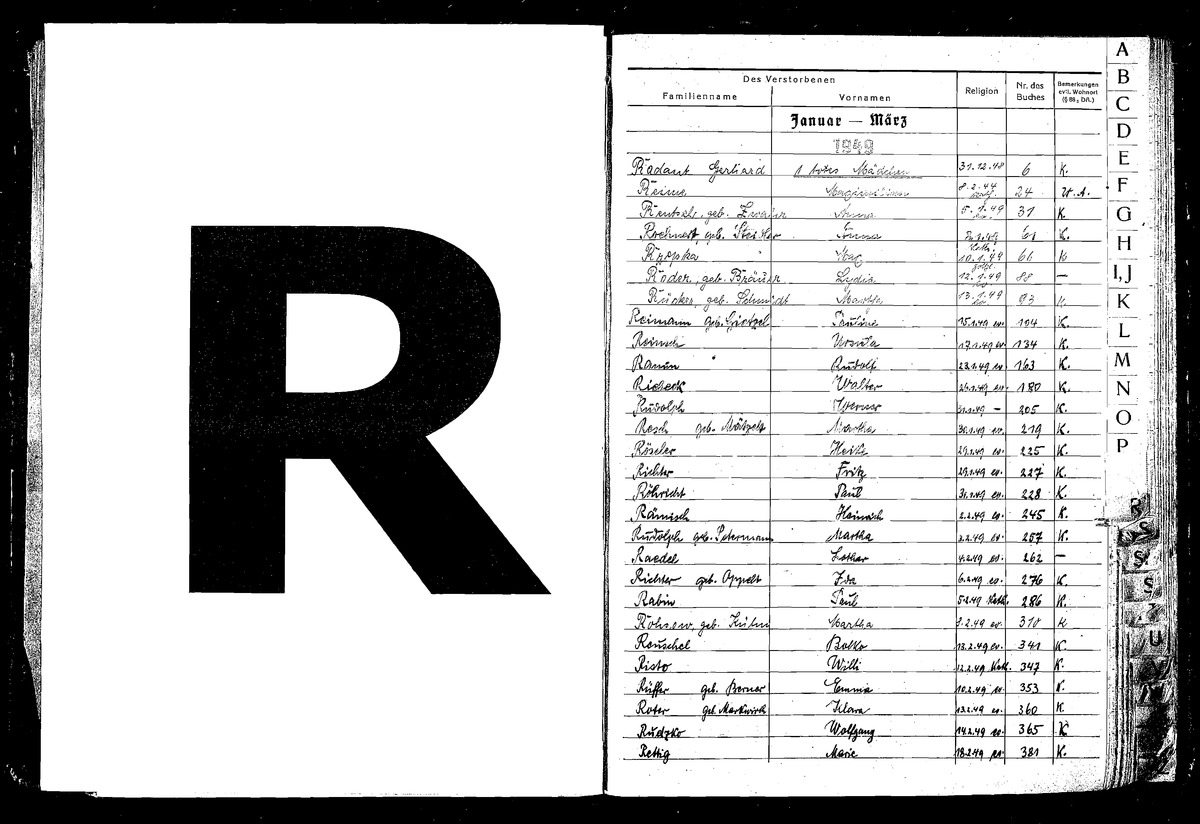 R
Des Verstorbenen
Familienname Vornamen Religion Nr. des Buches Bemerkungen evtl. Wohnort
Januar — März
1949
Radant Gerhard 1 totes Mädchen 31.12.48 6 K.
Reime 24 W.A.
geb. Anna 5.1.49 31 K.
geb. Anna K.
Max 10.1.49 66 K
Röder, geb. Bräuer Lydia 12.1.49 88 —
Rücker, geb. Schmidt Martha 13.1.49 93 K.
Reimann geb. Pauline 15.1.49 104 K.
Reinsch Ursula 17.1.49 ev. 134 K.
Rudolf 23.1.49 ev. 163 K.
Walter 180 K.
Rudolph Werner 31.1.49 — 205 K.
Resch geb. Martha ev. 219 K.
Röseler 29.1.49 ev. 225 K.
Richter Fritz 29.1.49 ev. 227 K.
Röhricht Paul 31.1.49 ev. 228 K.
Rämisch Heinrich 2.2.49 ev. 245 K.
Rudolph geb. Petermann Martha 3.2.49 ev. 257 K.
Raedel Lothar 4.2.49 ev. 262 —
Richter geb. Appelt Ida 6.2.49 ev. 276 K.
Rabin Paul 5.2.49 Kath. 286 K.
geb. Kuhn Martha 9.2.49 ev. 310 K
Reuschel Bolko 13.2.49 ev. 341 K.
Risto Willi 12.2.49 Kath. 347 K.
Rüffer geb. Berner Emma 10.2.49 ev. 353 K.
Roter geb. Markwirth Klara 13.2.49 ev. 360 K.
Rudzko Wolfgang 14.2.49 ev. 365 K.
Rettig Marie 18.2.49 ev. 381 K.
A
B
C
D
E
F
G
H
I,J
K
L
M
N
O
P
R
S
S
S
U